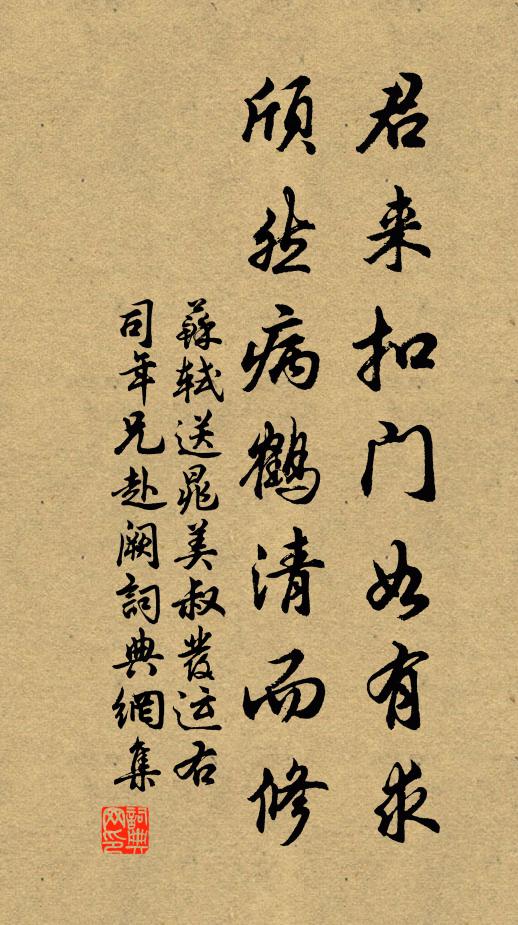 君来扣门如有求
頎然病鶴清而修
蘇軾送晁美叔發运右
司年兄赴闕詞典網集
詞典网印